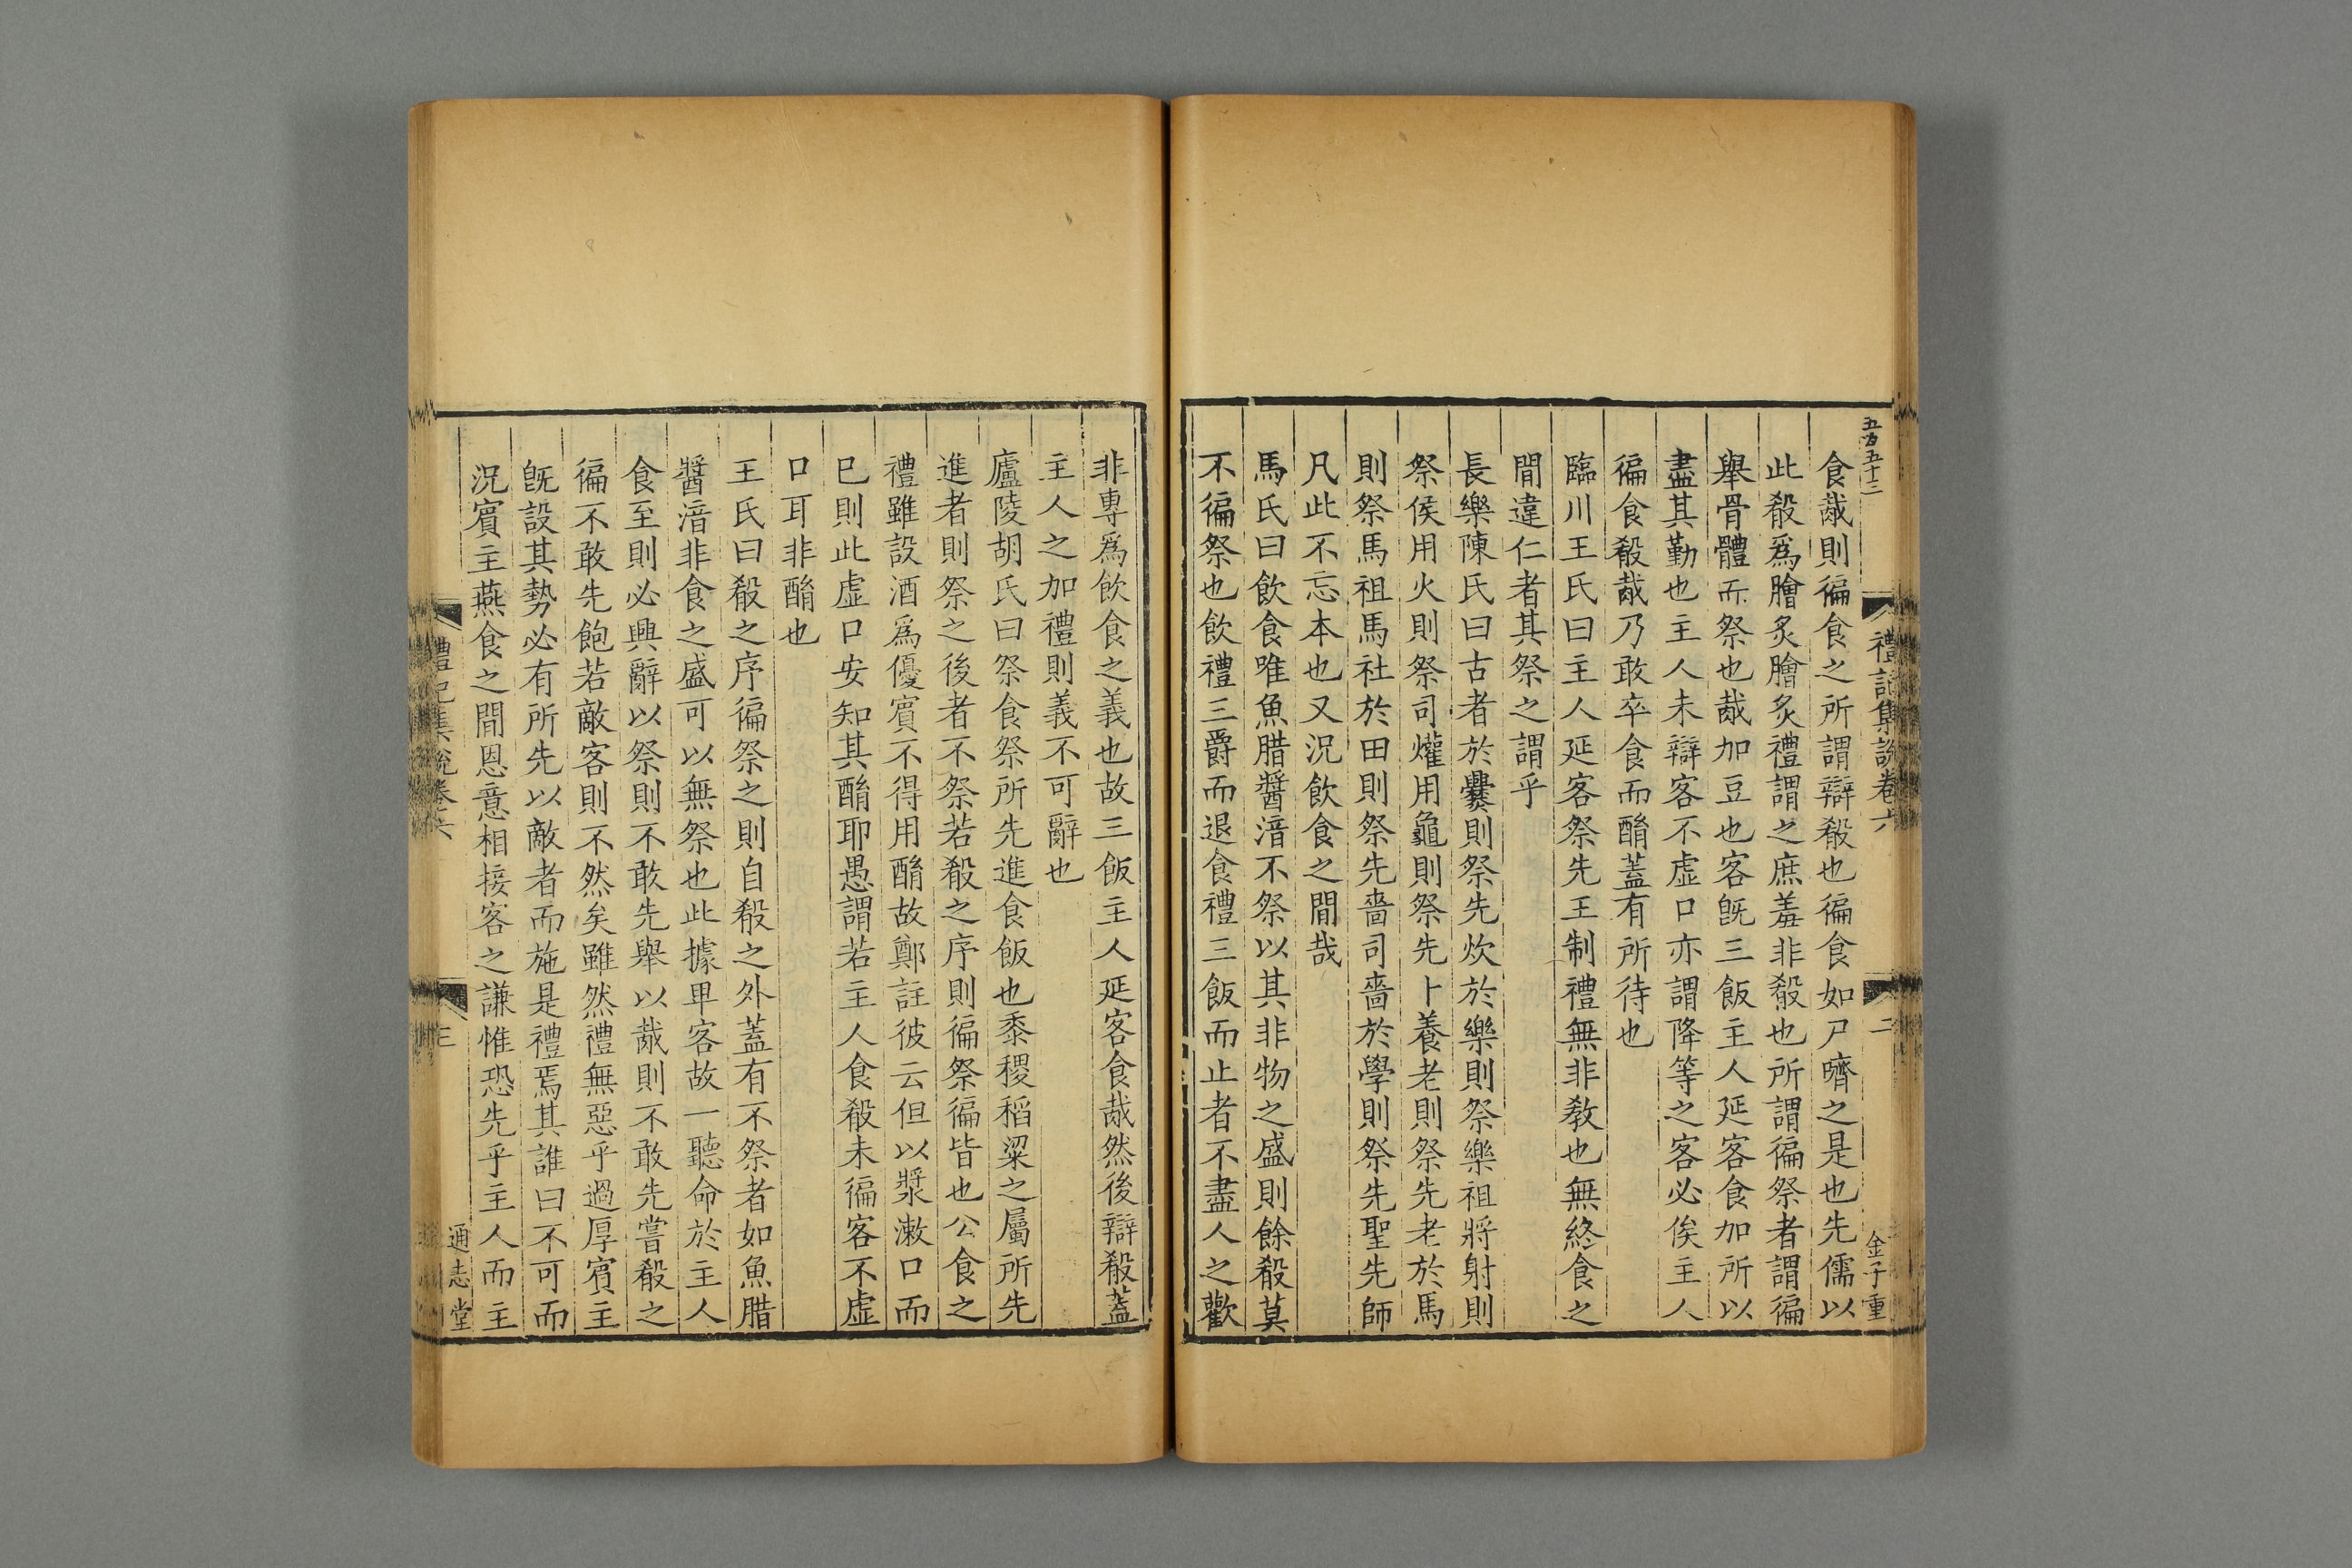 五百五十三
禮記集說卷六
二
金子重
食胾則徧食之所謂辯殽也徧食如尸嚌之是也先儒以
此殽爲膾炙膾炙禮謂之庶羞非殽也所謂徧祭者謂徧
舉骨體而祭也胾加豆也客旣三飯主人延客食加所以
盡其勤也主人未辯客不虛口亦謂降等之客必俟主人
徧食殽胾乃敢卒食而酳蓋有所待也
臨川王氏曰主人延客祭先王制禮無非敎也無終食之
間違仁者其祭之謂乎
長樂陳氏曰古者於爨則祭先炊於樂則祭樂祖將射則
祭侯用火則祭司爟用龜則祭先卜養老則祭先老於馬
則祭馬祖馬社於田則祭先嗇司嗇於學則祭先聖先師
凡此不忘本也又況飲食之間哉
馬氏曰飲食唯魚腊醬湆不祭以其非物之盛則餘殽莫
不徧祭也飲禮三爵而退食禮三飯而止者不盡人之歡
非專爲飲食之義也故三飯主人延客食胾然後辯殽蓋
主人之加禮則義不可辭也
廬陵胡氏曰祭食祭所先進食飯也黍稷稻粱之屬所先
進者則祭之後者不祭若殽之序則徧祭徧皆也公食之
禮雖設酒爲優賓不得用酳故鄭註彼云但以漿漱口而
已則此虛口安知其酳耶愚謂若主人食殽未徧客不虛
口耳非酳也
王氏曰殽之序徧祭之則自殽之外蓋有不祭者如魚腊
醬湆非食之盛可以無祭也此據卑客故一聽命於主人
食至則必興辭以祭則不敢先舉以胾則不敢先嘗殽之
徧不敢先飽若敵客則不然矣雖然禮無惡乎過厚賓主
旣設其勢必有所先以敵者而施是禮焉其誰曰不可而
況賓主燕食之間恩意相接客之謙惟恐先乎主人而主
禮記集說卷六
三
通志堂